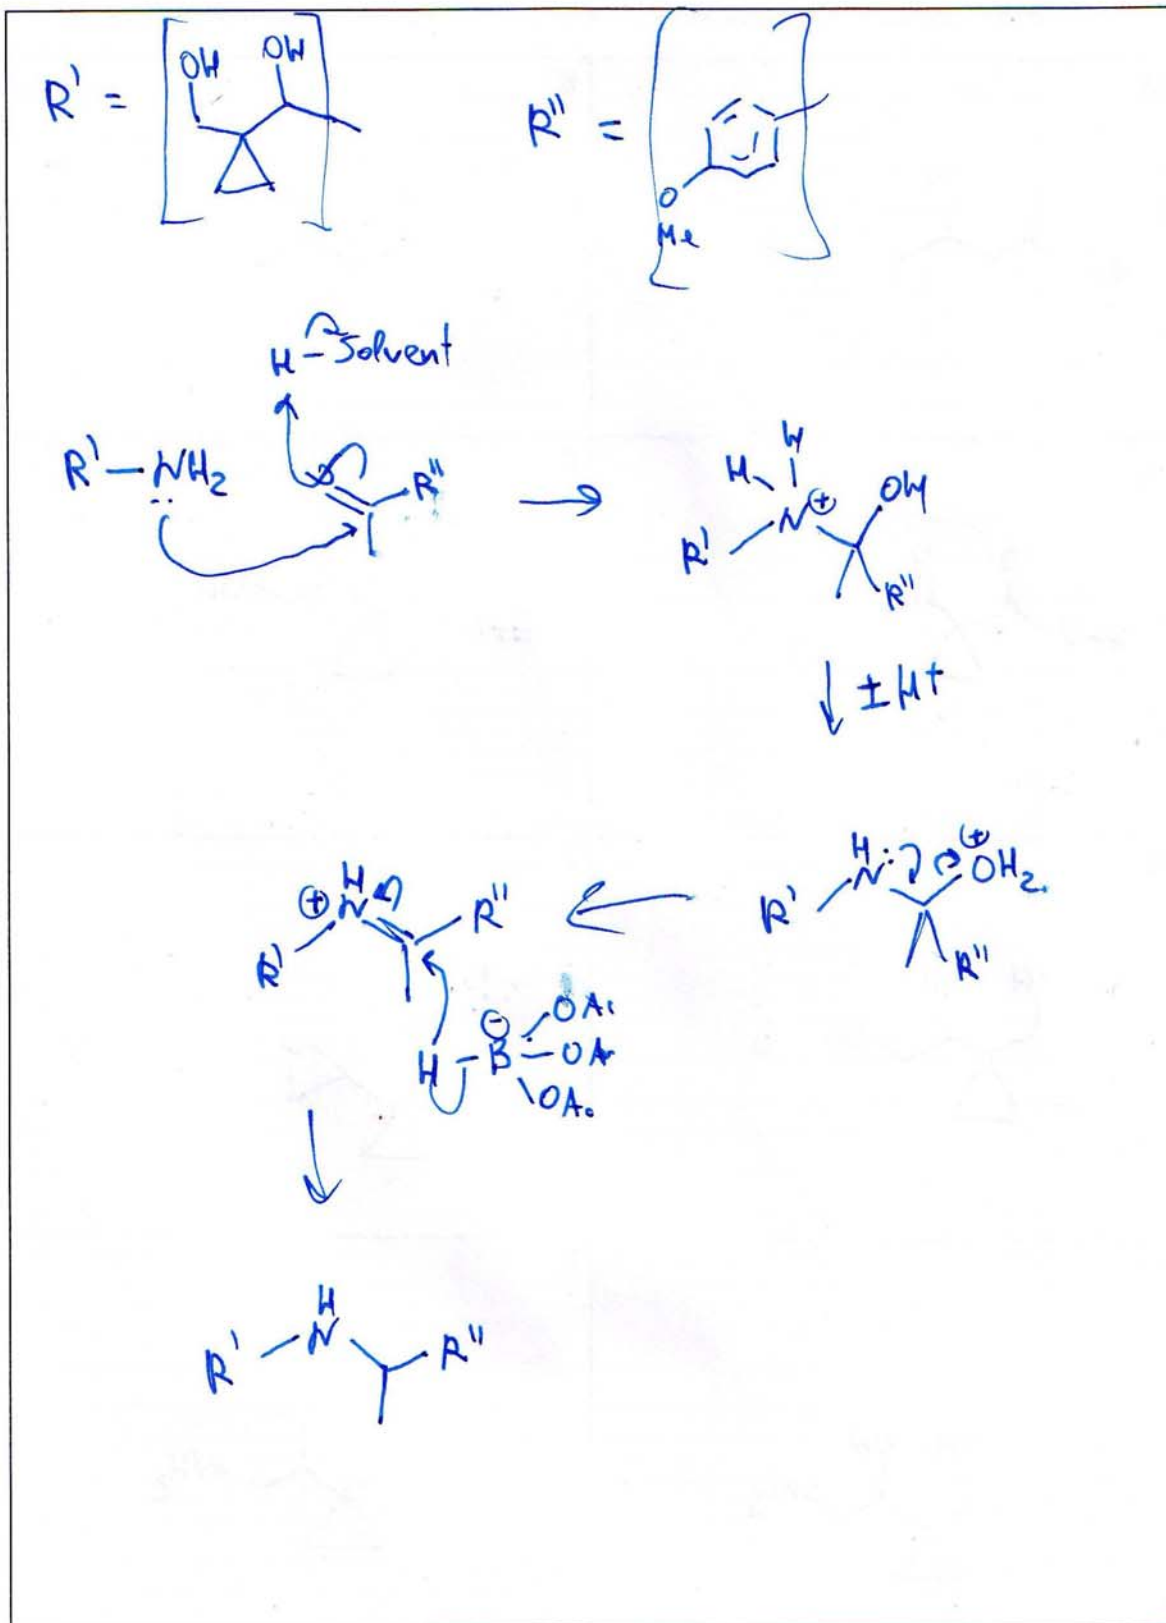 R' = OH OH
R'' = O Me
H - Solvent
R' - NH2 O R''
H H N ⊕ OH R' R''
± H+
⊕ H N R'' R'
R' H N : ⊕ OH2 R''
H - B ⊖ OAc
OAc
OAc
R' H N R''